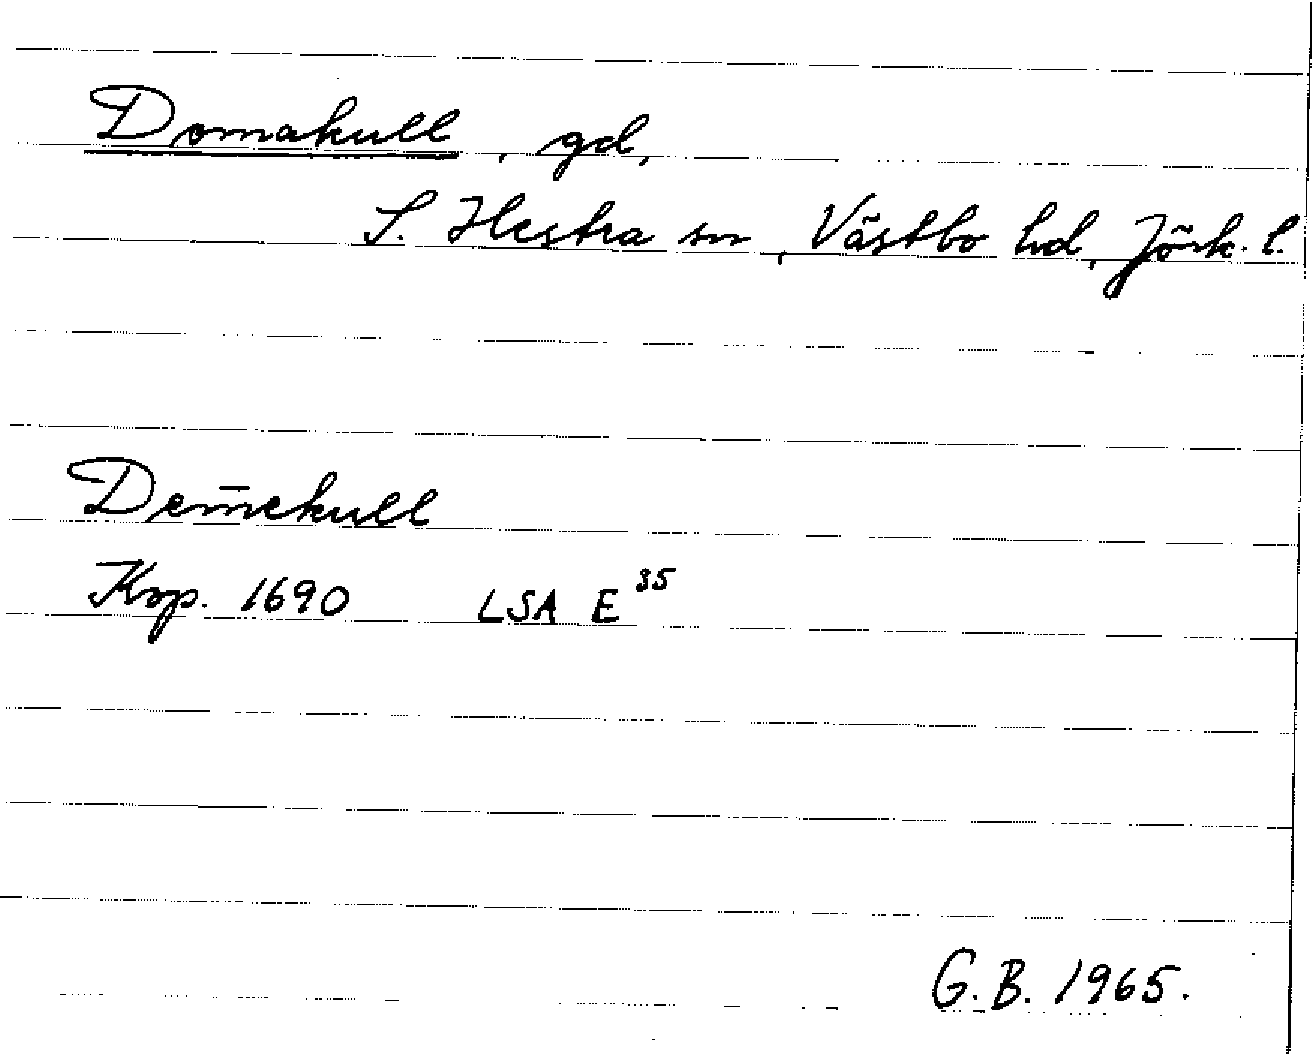 Domakull, gd,
S. Hestra sn, Västbo hd, Jönk. l.
Dem̄ekull
Ksp. 1690 LSA E 35
G.B. 1965.